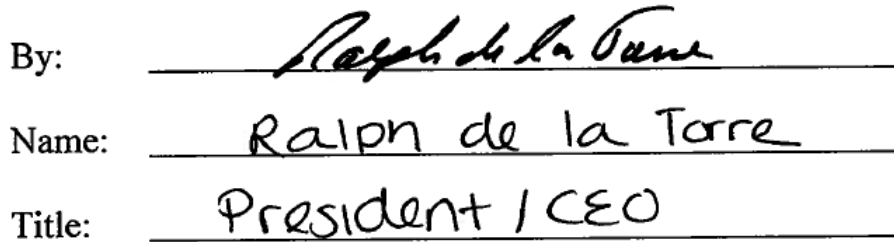 By: Ralph de la Torre
Name: Ralph de la Torre
Title: President / CEO